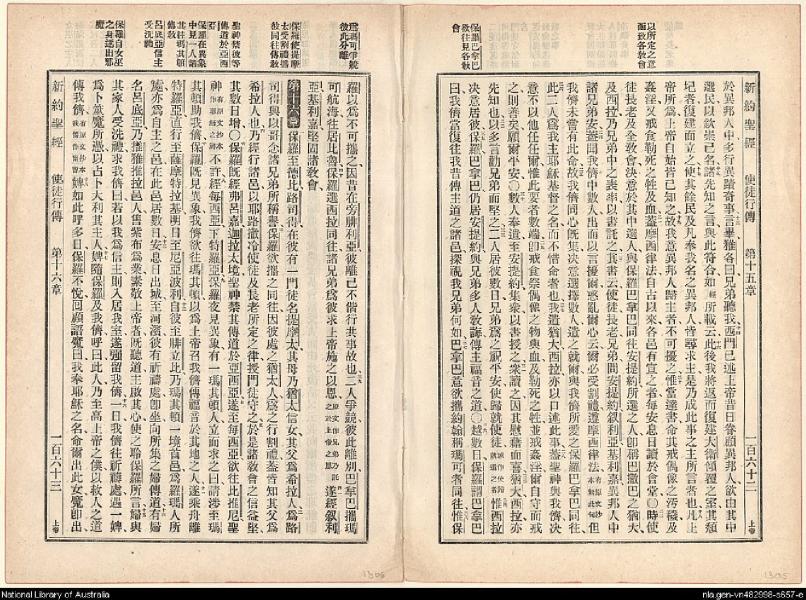 以所定之意
函致各敎會
於異邦人中多行異蹟奇事〇言畢雅各曰兄弟聽我西門已述上帝昔日眷顧異邦人欲由其中
選民以欲崇己名諸先知之言與此符合如經所載云此後我將返而復建大衛傾覆之室其頹
圮者復建而立之使其餘民及凡奉我名之異邦人皆尋求主是乃成此事之主所言者也凡上
帝所爲上帝自始皆已知之故我意異邦人歸主帝不可擾之惟當達書命其戒偶像之汚穢及
姦淫又戒食勒死之牲及血蓋摩西律法自古以來各邑有宣之者每安息日讀於會堂〇時使
徒長老及全敎會決意於其中選人與保羅巴拿巴同往安提約所選之人卽稱巴撒巴之猶大
及西拉乃兄弟中之表率以書託之其書云使徒長老兄弟問安提約叙利亞基利嘉異邦人中
諸兄弟安我聞我儕中數人出而以言擾爾惑亂爾心云爾必受割禮遵摩西律法
我儕未曾有此命故我儕同心既集決意選擇數人遣之就爾與我儕所愛之保羅巴拿巴同往
此二人爲我主耶穌基督之名而不惜命者也我儕遣猶大西拉亦以口述此事蓋聖神與我儕決
意不以他任任爾惟此要者數端卽戒食祭偶像之物與血及勒死之牲並戒姦淫爾自守而戒
之則善矣願爾平安〇數人奉遣至安提約集衆以書授之衆讀之因其慰藉而喜猶大西拉亦
先知也以多言勸兄弟而堅之二人居彼數日兄弟爲之祝平安使歸就使徒惟西拉
決意居彼保羅巴拿巴仍居安提約與兄弟多人敎誨傳主福音之道〇越數日保羅謂巴拿巴
曰我儕當復往我昔傳主道之諸邑探視我兄弟何如巴拿巴意欲攜約翰稱瑪可者同往惟保
保羅巴拿巴
欲往見各敎
會
新約聖經 使徒行傳 第十五章 一百六十二 上帝
爲瑪可爭競
彼此分離
保羅使提摩
太受割禮攜
彼同往傳敎
聖神禁彼等
傳道於亞西
亞
保羅在異象
中見一人請
其往瑪其頓
傳敎
呂底亞信主
受洗禮
保羅自女巫
之身逐出邪
魔
羅以爲不可攜之因昔在旁腓利亞彼離己不偕行共事故也二人爭競彼此離別巴拿巴攜瑪
可航海往居比魯保羅選西拉同往諸兄弟爲彼求上帝施之以恩遂經叙利
亞基利嘉堅固諸敎會
第十六章 保羅至德比路司得在彼有一門徒名提摩太其母乃猶太信女其父爲希拉人爲路
司得與以哥念諸兄弟所稱譽保羅欲攜之同往因彼處之猶太人爲之行割禮蓋皆知其父爲
希拉人也乃經行諸邑以耶路撒冷使徒及長老所定之律授門徒守之於是諸敎會之信益堅
其數日增〇保羅既經弗呂嘉迦拉太地聖神禁其傳道於亞西亞遂至每西亞欲往比推尼聖
神不許經每西亞下特羅亞保羅夜見異象有一瑪其頓人立而求之曰請濟至瑪
其頓助我儕保羅既見異象我儕欲往瑪其頓以爲上帝召我儕傳福音於其地之人遂乘舟離
特羅亞直行至薩摩特拉基明日至尼亞波利自彼至腓立比乃瑪其頓一境首邑爲羅瑪人所
處亦爲自主之邑在此邑居數日安息日出城至河濱彼有祈禱處卽坐向所集之婦傳道有婦
名呂底亞乃推雅推拉邑人售紫布爲業素敬上帝者既聽道主啟其心使之聆保羅所言婦與
其家人受洗禮求我儕曰若以我爲信主則入居我室遂強留我儕一日我儕往祈禱處遇一婢
爲卜筮魔所憑以占卜大利其主人婢隨保羅及我儕呼曰此人乃至高上帝之僕以救人之道
傳我儕婢如此呼多日保羅不悅回顧謂魔曰我奉耶穌之名命爾出此女魔卽出
新約聖經 使徒行傳 第十六章 一百六十三 上帝
National Library of Australia
nla.gen-vn482998-s657-e